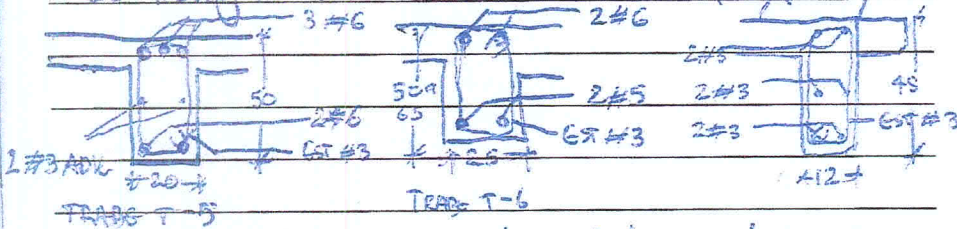 3#6
50
2#6
EST #3
2#3 ADIC
20
TRABE T-5
2#6
50 A
65
2#5
EST #3
25
TRABE T-6
2#3
2#3
2#3
EST #3
12